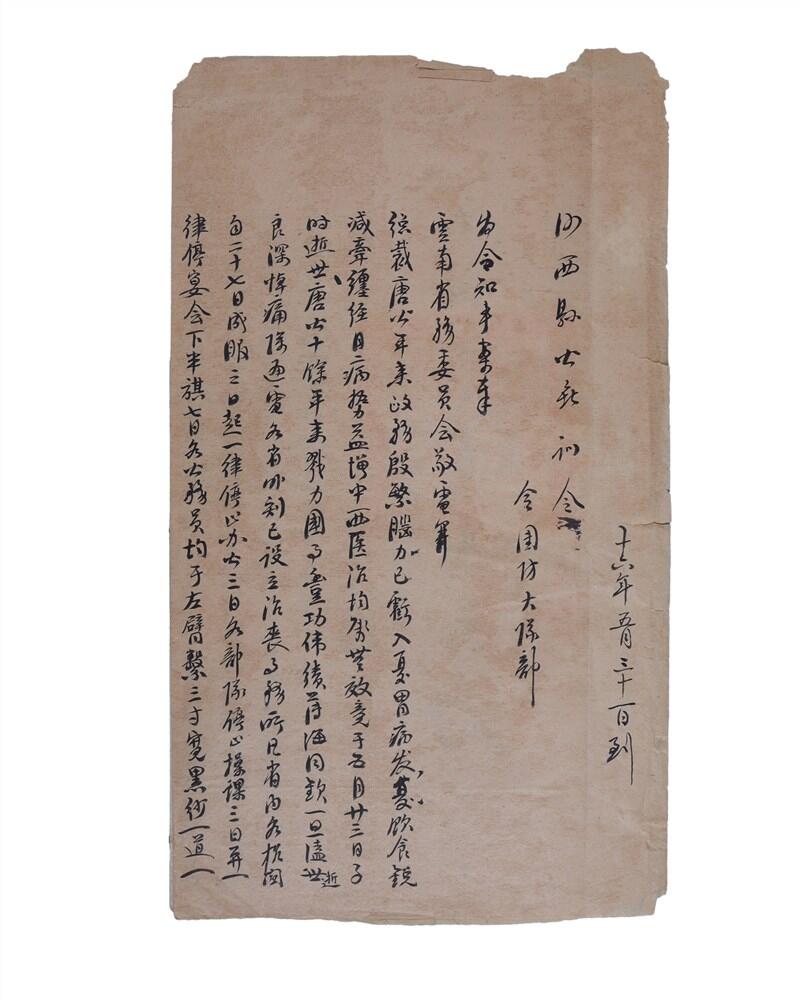 十六年五月三十一日到
西縣公署訓令
令團防大隊部
為令知事案奉
雲南省務委員會敬電開
總裁唐公年來政務殷繁腦力已虧入夏胃病發復飲食銳
減牽纏經月病勢益增中西医治均屬無效竟于五月廿三日子
时逝世唐公十餘年来戮力國事豐功偉績薄海同欽一旦溘逝世
良深悼痛除通電各省外刻已設立治喪事務所凡省內各機関
自二十七日成服之日起一律停止办公三日各部隊停止操課三日并一
律停宴会下半旗七日各公務員均于左臂繫三寸寬黑紗一道一